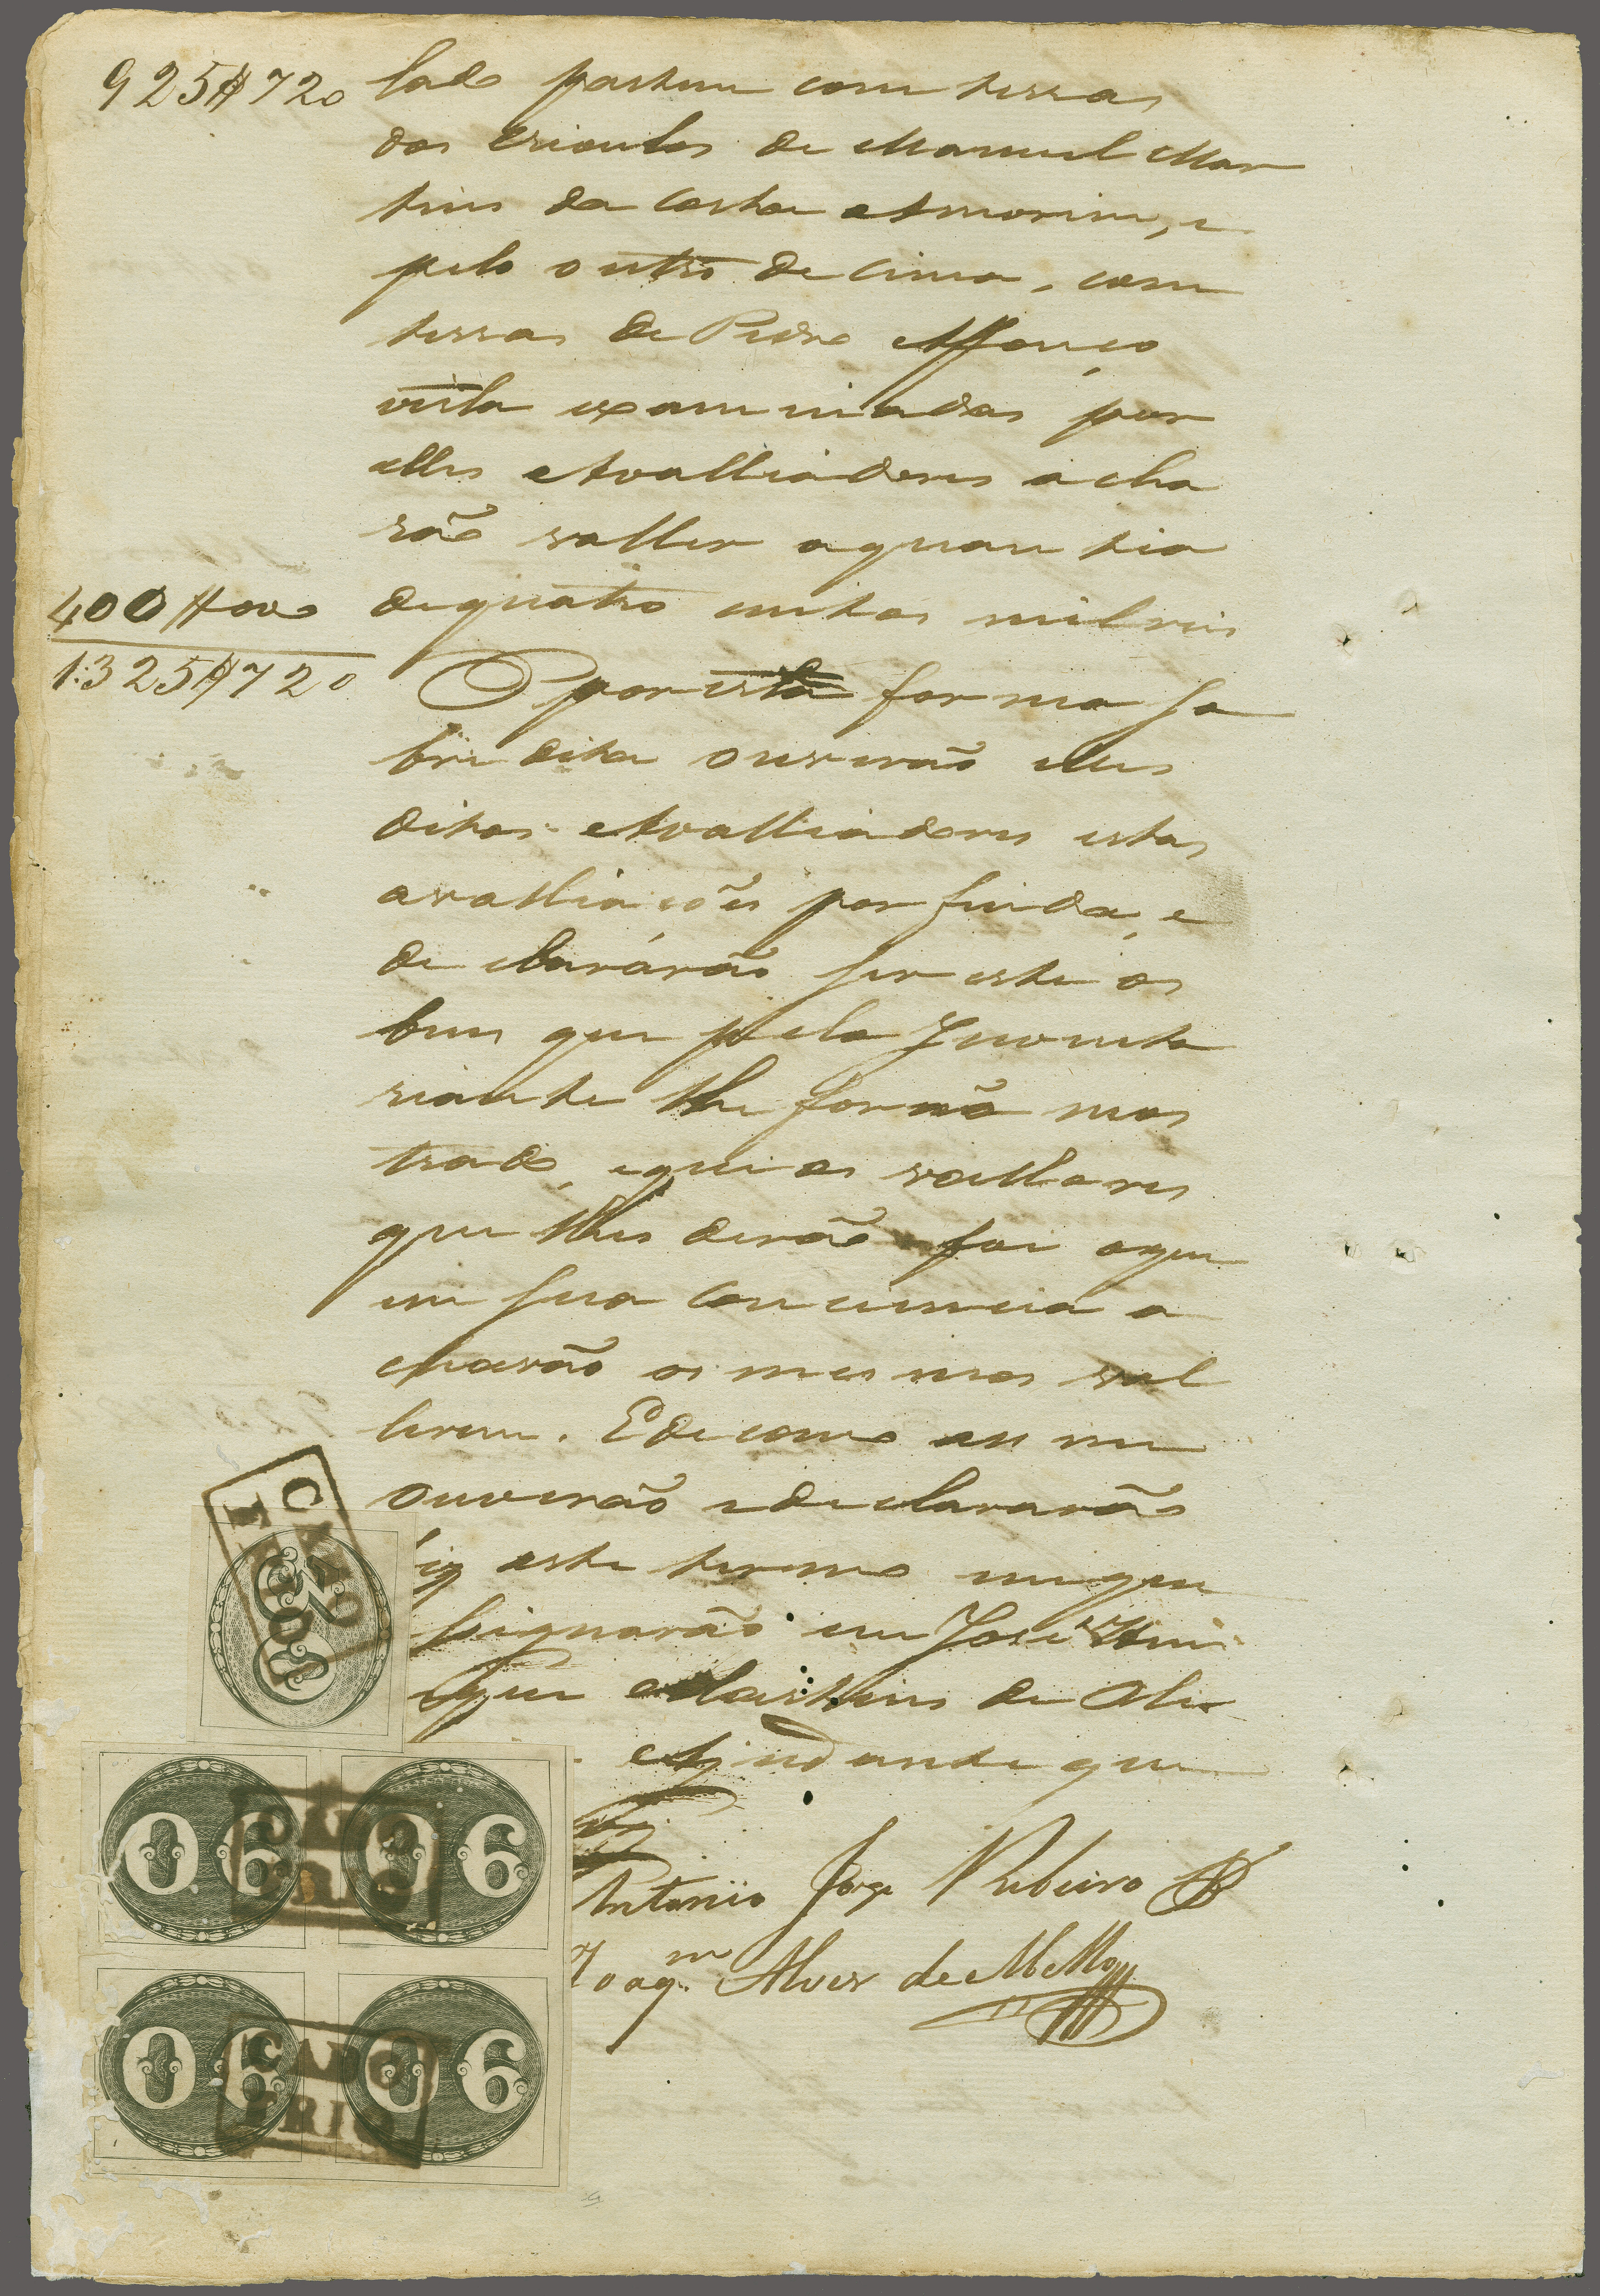 925$720
lado partem com terras
dos de Manuel Mar
tins da Costa Amorim, e
pelo outro de cima, com
terras de Pedro Affonço
vista examinadas por
elles Avalliadores acha
rão valler aquantia
400$000
dequatro centos milreis
1:325$720
por esta forma so
bredita ouverão elles
ditos Avalliadores estas
avalliações por finda, e
declarárão ser este os
bens que pela Inventa
riante lhe forão mos
trado, equi os vallores
que lhes derão foi oque
em sua conciencia a
charão os mesmos val
lerem. Edecomo assim
ouverão edeclararão
este termo em que
signarão eu José
que Martins de Oli
Ajudante que
Antonio Jorge Ribeiro
Joaqm. Alves de Mello
CABO
FRIO
90
90
90
90
90
CABO
FRIO
CABO
FRIO